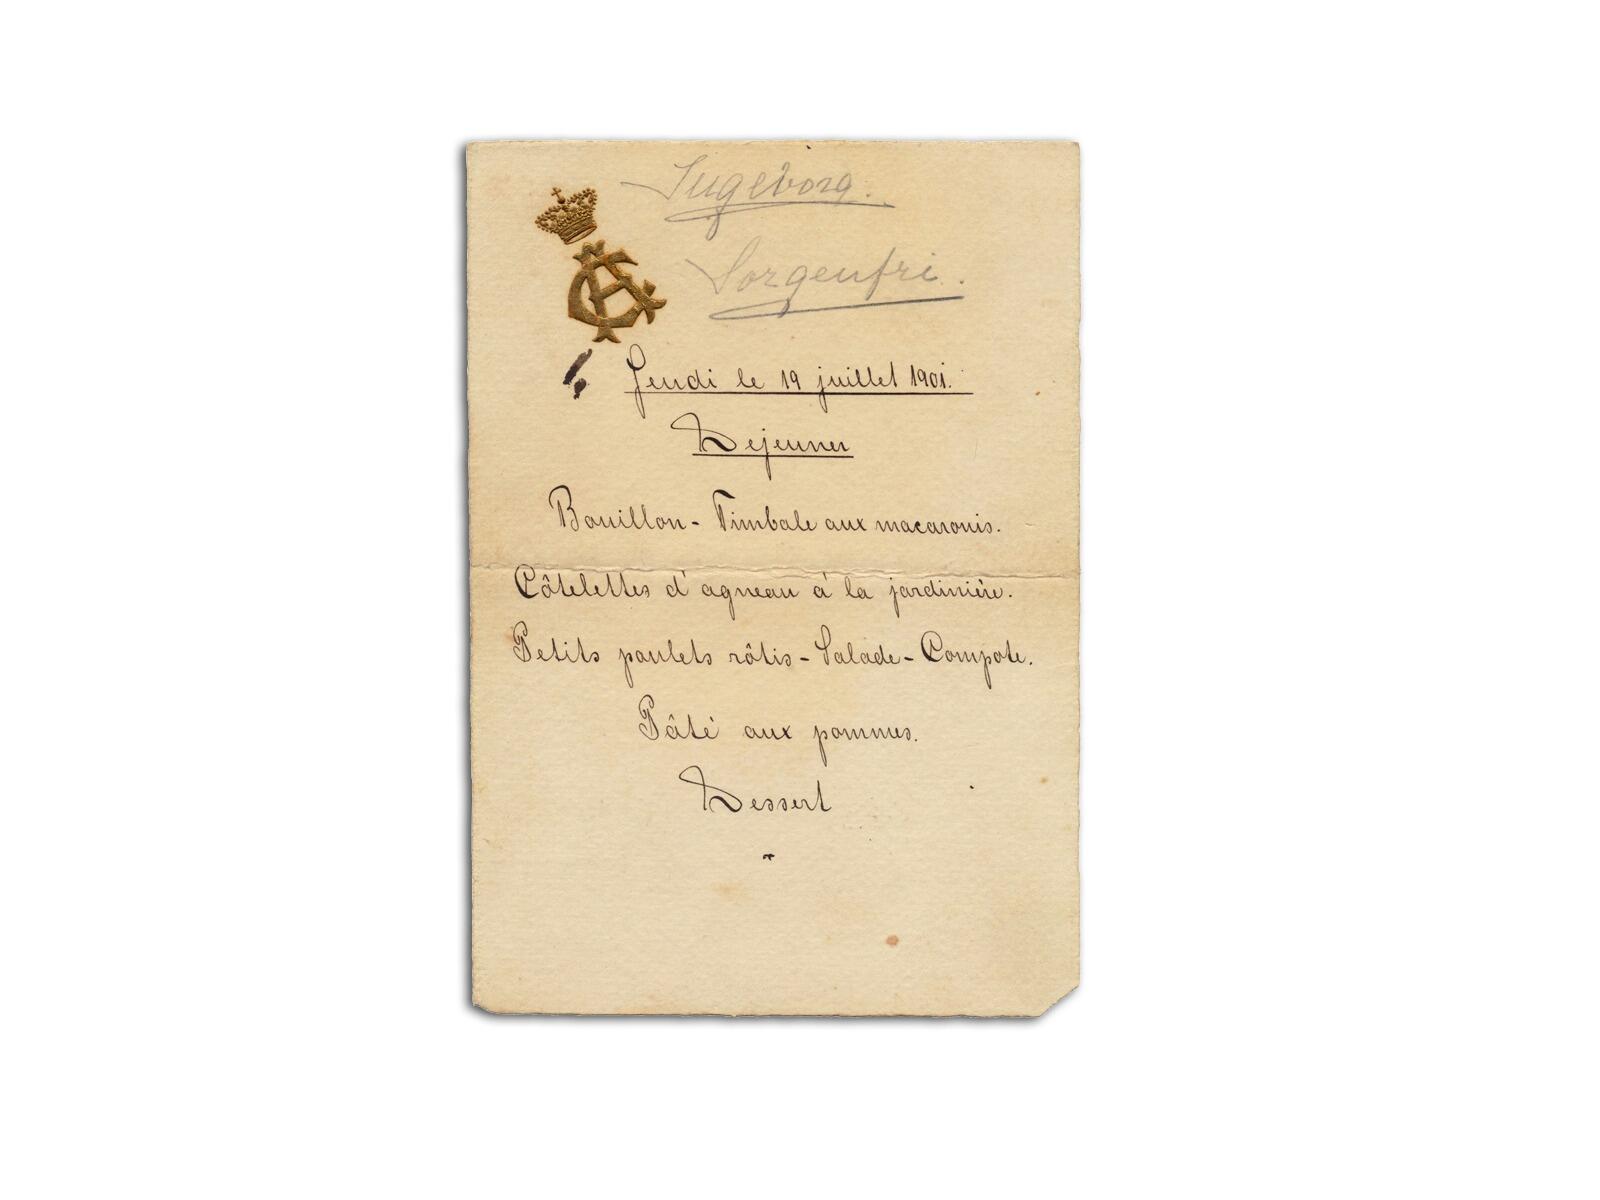 Ingeborg.
Sorgenfri.
Jeudi le 19 juillet 1901.
Dejeuner
Bouillon - Timbale aux macaronis.
Côtelettes d'agneau à la jardinière.
Petits poulets rôtis - Salade - Compote.
Pâté aux pommes.
Dessert